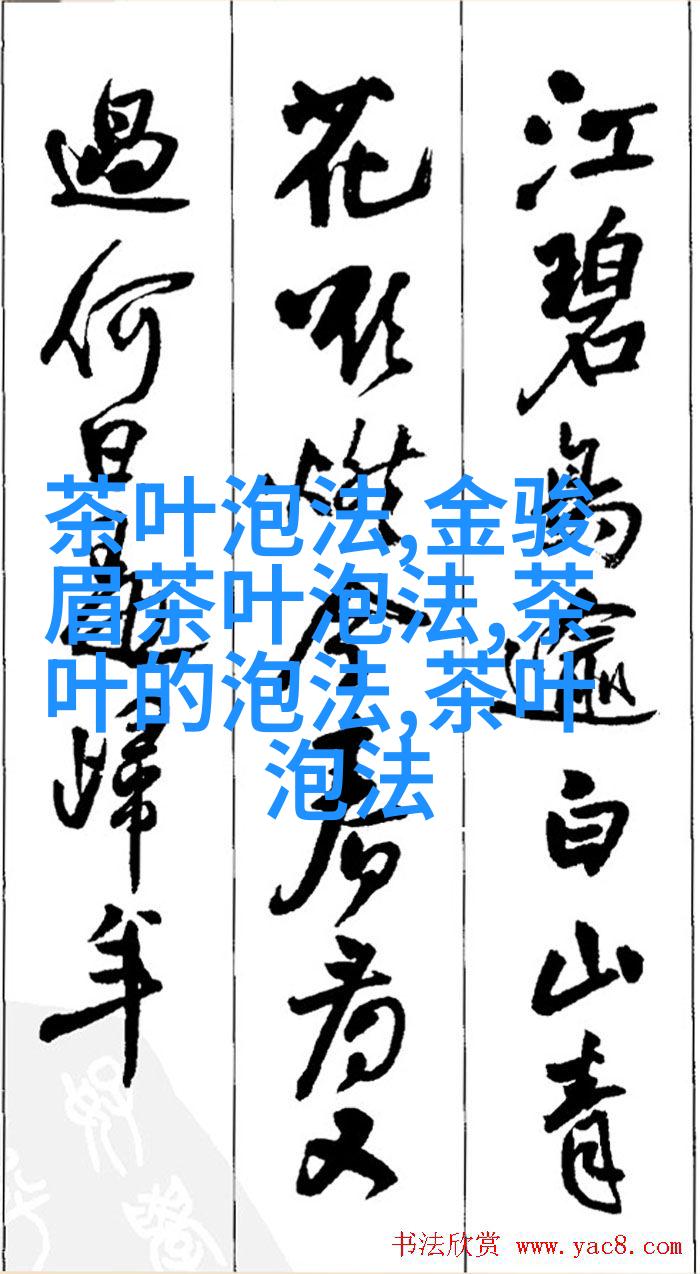 江碧鳥逾白山青
花欲燃今春看又
過何日是歸年
茶叶泡法,金骏
眉茶叶泡法,茶
叶的泡法,茶叶
泡法
书法欣赏 www.yac8.com